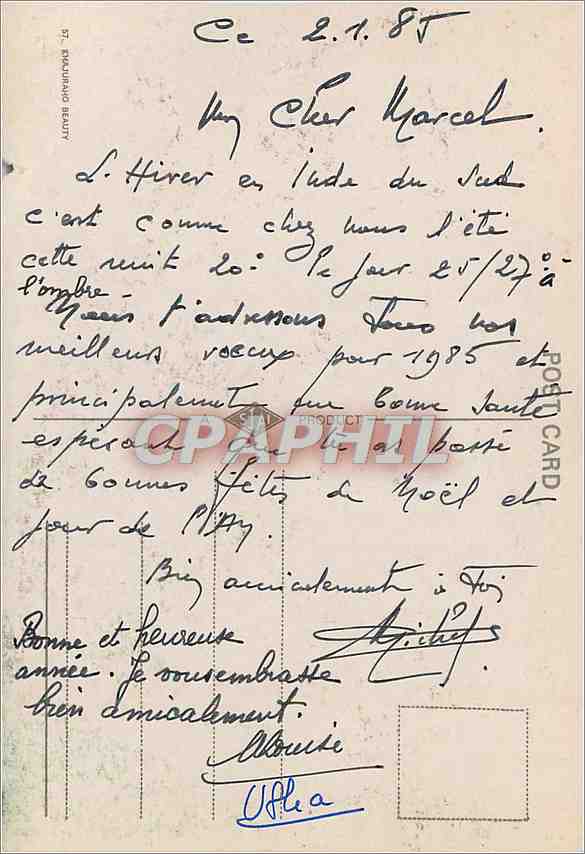 57. KHAJURAHO BEAUTY
Ce 2.1.85
Mon Cher Marcel.
L'Hiver en Inde du Sud
c'est comme chez nous l'été
cette nuit 20° le jour 25/27° à
l'ombre.
Nous t'adressons tous nos
meilleurs voeux pour 1985 et
principalement une bonne santé
A SIA PRODUCT
CPAPHIL
espérant que tu as passé
de bonnes fêtes de Noël et
jour de l'An.
Bien amicalement à toi
Michel
Bonne et heureuse
année. Je vous embrasse
bien amicalement.
POST CARD